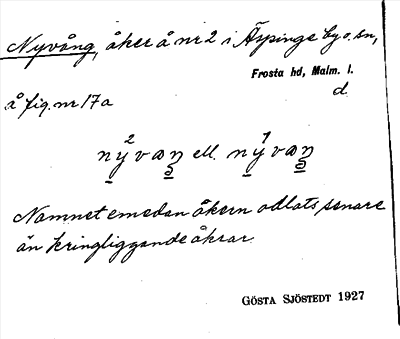 Nyvång, åker å nr 2 i Äspinge by o. sn,
Frosta hd, Malm. l.
d.
å fig. nr 17a
ell.
Namnet emedan åkern odlats senare
än kringliggande åkrar.
GÖSTA SJÖSTEDT 1927